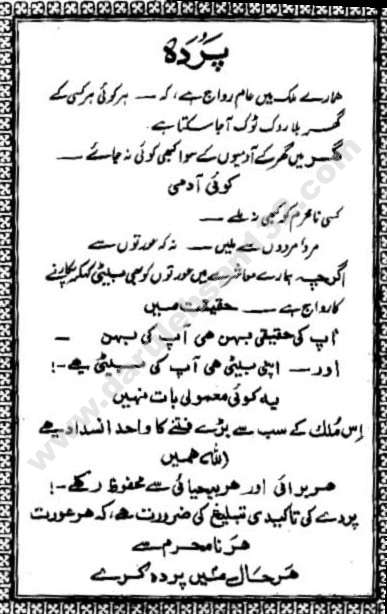 پردہ
ہمارے ملک میں عام رواج ہے، کہ — ہر کوئی ہر کسی کے
گھر بلا روک ٹوک آ جا سکتا ہے
گھر میں گھر کے آدمیوں کے سوا کبھی کوئی نہ جائے —
کوئی آدمی
کسی نامحرم کو کبھی نہ ملے —
مرد مردوں سے ملیں — نہ کہ عورتوں سے
اگرچہ ہمارے معاشرے میں عورتوں کو بھی بیٹی کہہ کر پکارنے
کا رواج ہے — حقیقت میں
آپ کی حقیقی بہن ھی آپ کی بہن —
اور — اپنی بیٹی ھی آپ کی بیٹی ہے -!
یہ کوئی معمولی بات نہیں
اس ملک کے سب سے بڑے فتنے کا واحد انسداد ہے
اللہ ھمیں
ھر برائی اور ھر بیحیائی سے محفوظ رکھے -!
پردے کی تاکیدی تبلیغ کی ضرورت ھے، کہ ھر عورت
ھر نامحرم سے
ھر حال میں پردہ کرے
www.darulehssan138.com